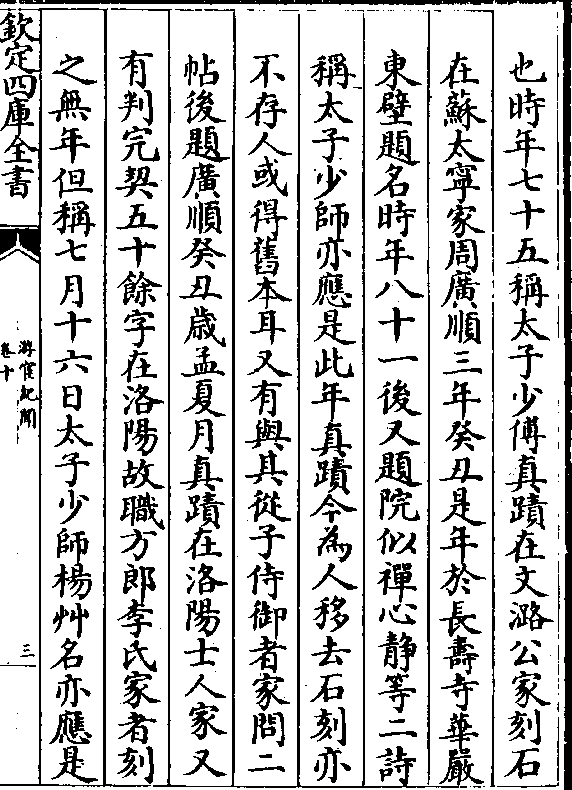 也時年七十五稱太子少傅真蹟在文潞公家刻石
在蘇太寧家周廣順三年癸丑是年於長壽寺華嚴
東壁題名時年八十一後又題院似禪心靜等二詩
稱太子少師亦應是此年真蹟今為人移去石刻亦
不存人或得舊本耳又有與其從子侍御者家問二
帖後題廣順癸丑歳孟夏月真蹟在洛陽士人家又
有判完契五十餘字在洛陽故職方郎李氏家者刻
之無年但稱七月十六日太子少師楊艸名亦應是
欽定四庫全書
游宦紀聞
卷十
三